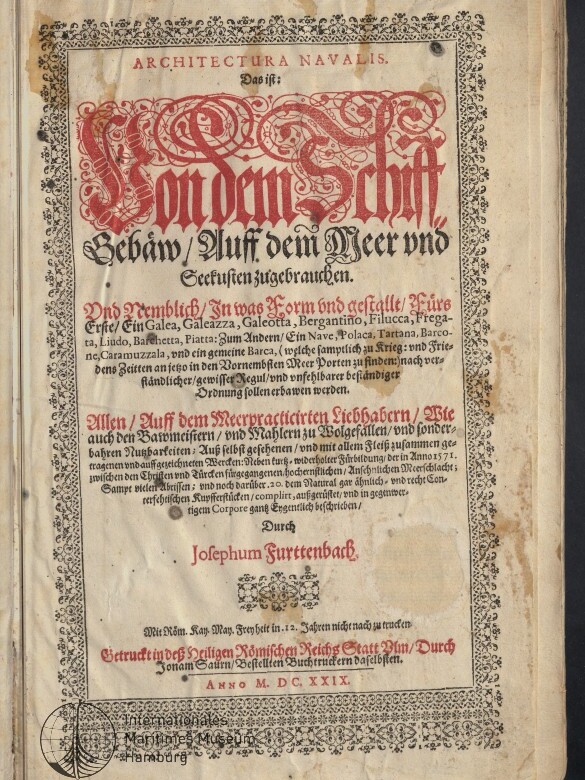 ARCHITECTURA NAVALIS.
Das ist:
Von dem Schiff-
Gebäw / Auff dem Meer vnd
Seekusten zugebrauchen.
Vnd Nemblich / In was Form vnd gestallt / Fürs
Erste / Ein Galea, Galeazza, Galeotta, Bergantino, Filucca, Frega-
ta, Liudo, Barchetta, Piatta: Zum Andern / Ein Nave, Polaca, Tartana, Barco-
ne, Caramuzzala, vnd ein gemeine Barca, (welche samptlich zu Krieg: vnd Frie-
dens Zeitten an jetzo in den Vornembsten Meer Porten zu finden) nach ver-
ständlicher / gewisser Regul / vnd vnfehlbarer beständiger
Ordnung sollen erbawen werden.
Allen / Auff dem Meer practicirten Liebhabern / Wie
auch den Bawmeistern / vnd Mahlern zu Wolgefallen / vnd sonder-
bahren Nutzbarkeiten: Auß selbst gesehenen / vnd mit allem Fleiß zusammen ge-
tragenen vnd auffgezeichneten Wercken: Neben kurtz- widerholter Fürbildung / der in Anno 1571.
zwischen den Christen vnd Türcken fürgegangenen / hochernstlichen / Ansehnlichen Meerschlacht;
Sampt vielen Abrissen: vnd noch darüber. 20. dem Natural gar ähnlich- vnd recht Con-
terfehtischen Kupfferstücken / complirt, auffgerüstet / vnd in gegenwer-
tigem Corpore gantz Eygentlich beschrieben /
Durch
Josephum Furttenbach.
Mit Röm. Kay. May. Freyheit in. 12. Jahren nicht nach zu trucken
Getruckt in deß Heiligen Römischen Reichs Statt Vlm / Durch
Jonam Saurn / Bestellten Buchtruckern daselbsten.
ANNO M. DC. XXIX.
Internationales
Maritimes Museum
Hamburg